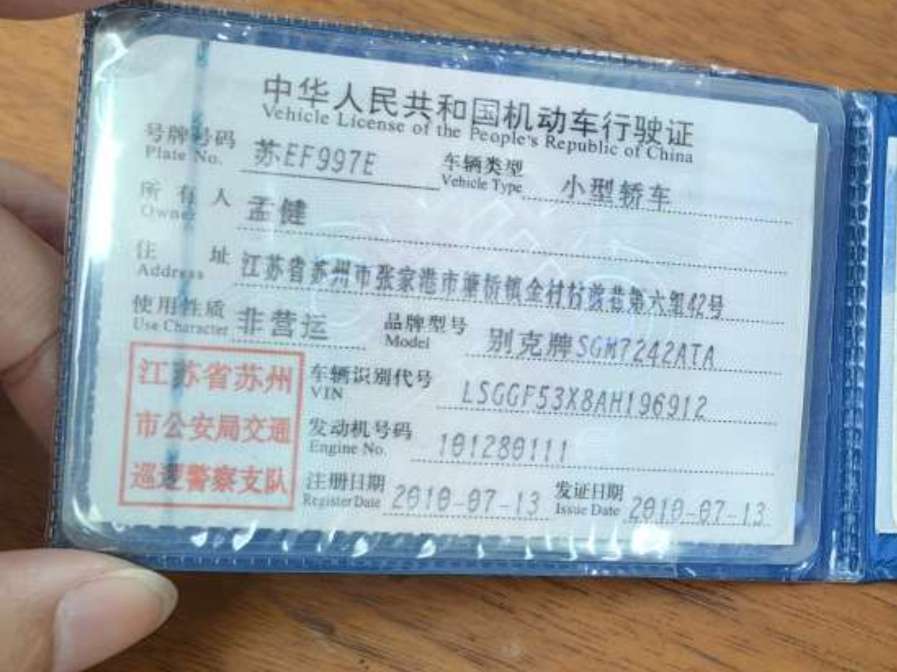 中华人民共和国机动车行驶证
Vehicle License of the People's Republic of China
号牌号码 苏EF997E 车辆类型 小型轿车
Plate No. Vehicle Type
所有人 孟健
Owner
住址 江苏省苏州市张家港市塘桥镇金村村 巷第六组42号
Address
使用性质 非营运 品牌型号 别克牌SGM7242ATA
Use Character Model
江苏省苏州
市公安局交通
巡逻警察支队
车辆识别代号 LSGGF53X8AH196912
VIN
发动机号码 101280111
Engine No.
注册日期 2010-07-13 发证日期 2010-07-13
Register Date Issue Date